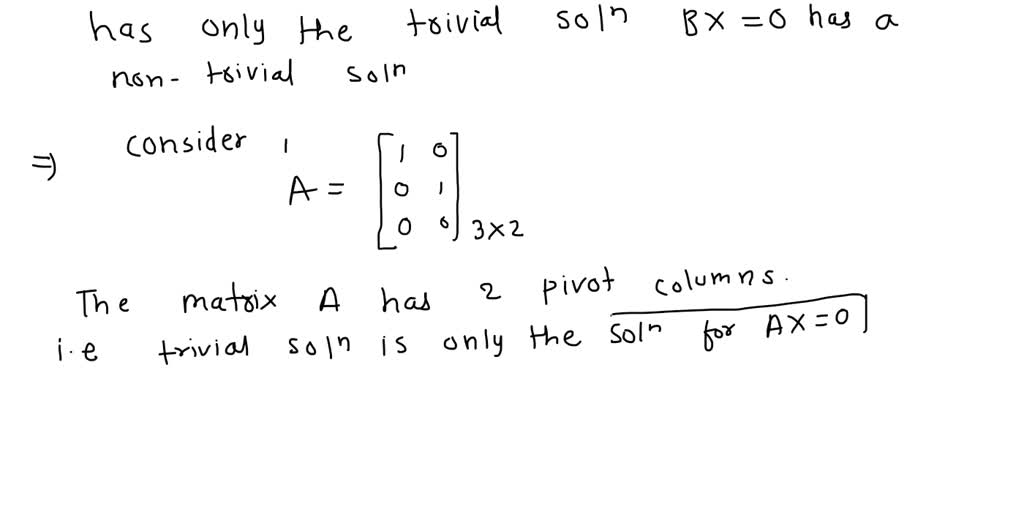 has only the trivial soln BX=0 has a
non-trivial soln
⇒ consider,
A = [1 0
0 1
0 0] 3×2
The matrix A has 2 pivot columns.
i.e trivial soln is only the soln for AX=0